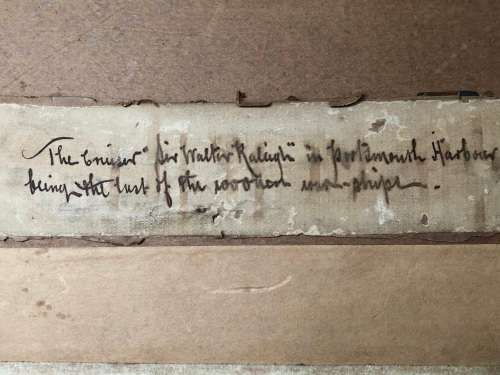 The Cruiser "Sir Walter Raleigh" in Portsmouth Harbour
being the last of the wooden war-ships.